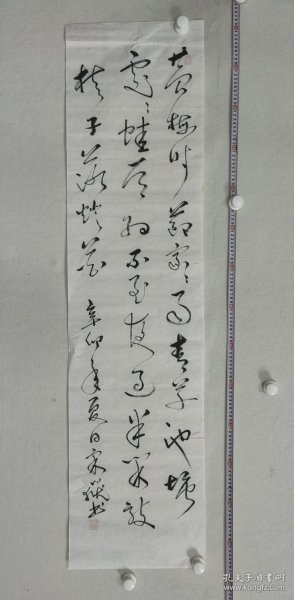 黄梅时節家〻雨青草池塘
處〻蛙有約不来夜过半闲敲
棋子落灯花 辛卯年夏日宋書
孔夫子旧书网